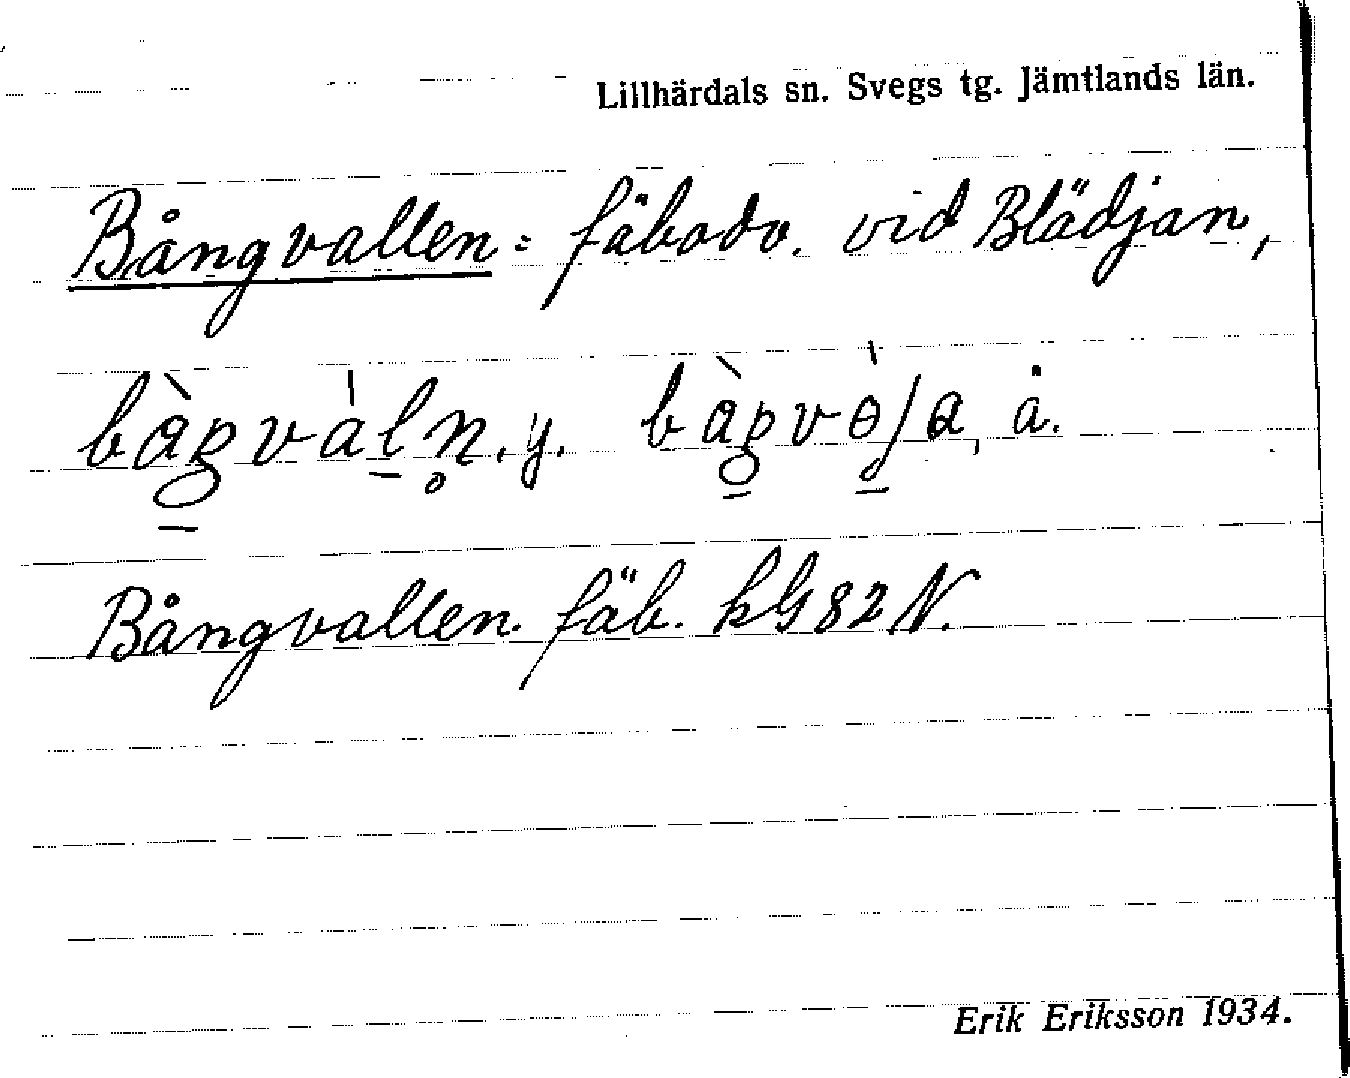 Lillhärdals sn. Svegs tg. Jämtlands län.
Bångvallen = fäbodv. vid Blädjan,
y. å.
Bångvallen. fäb. kG 82 N.
Erik Eriksson 1934.